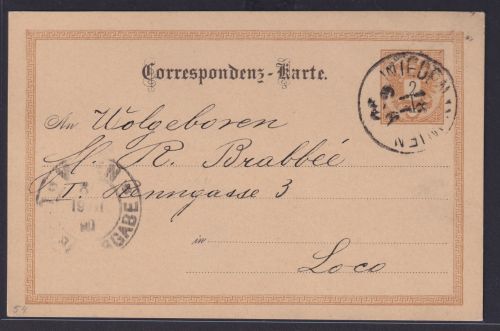 Correspondenz-Karte.
WIEDEN
WIEN
2
An Wolgeboren
H. R. Brabbée
I. Renngasse 3
in Loco
54